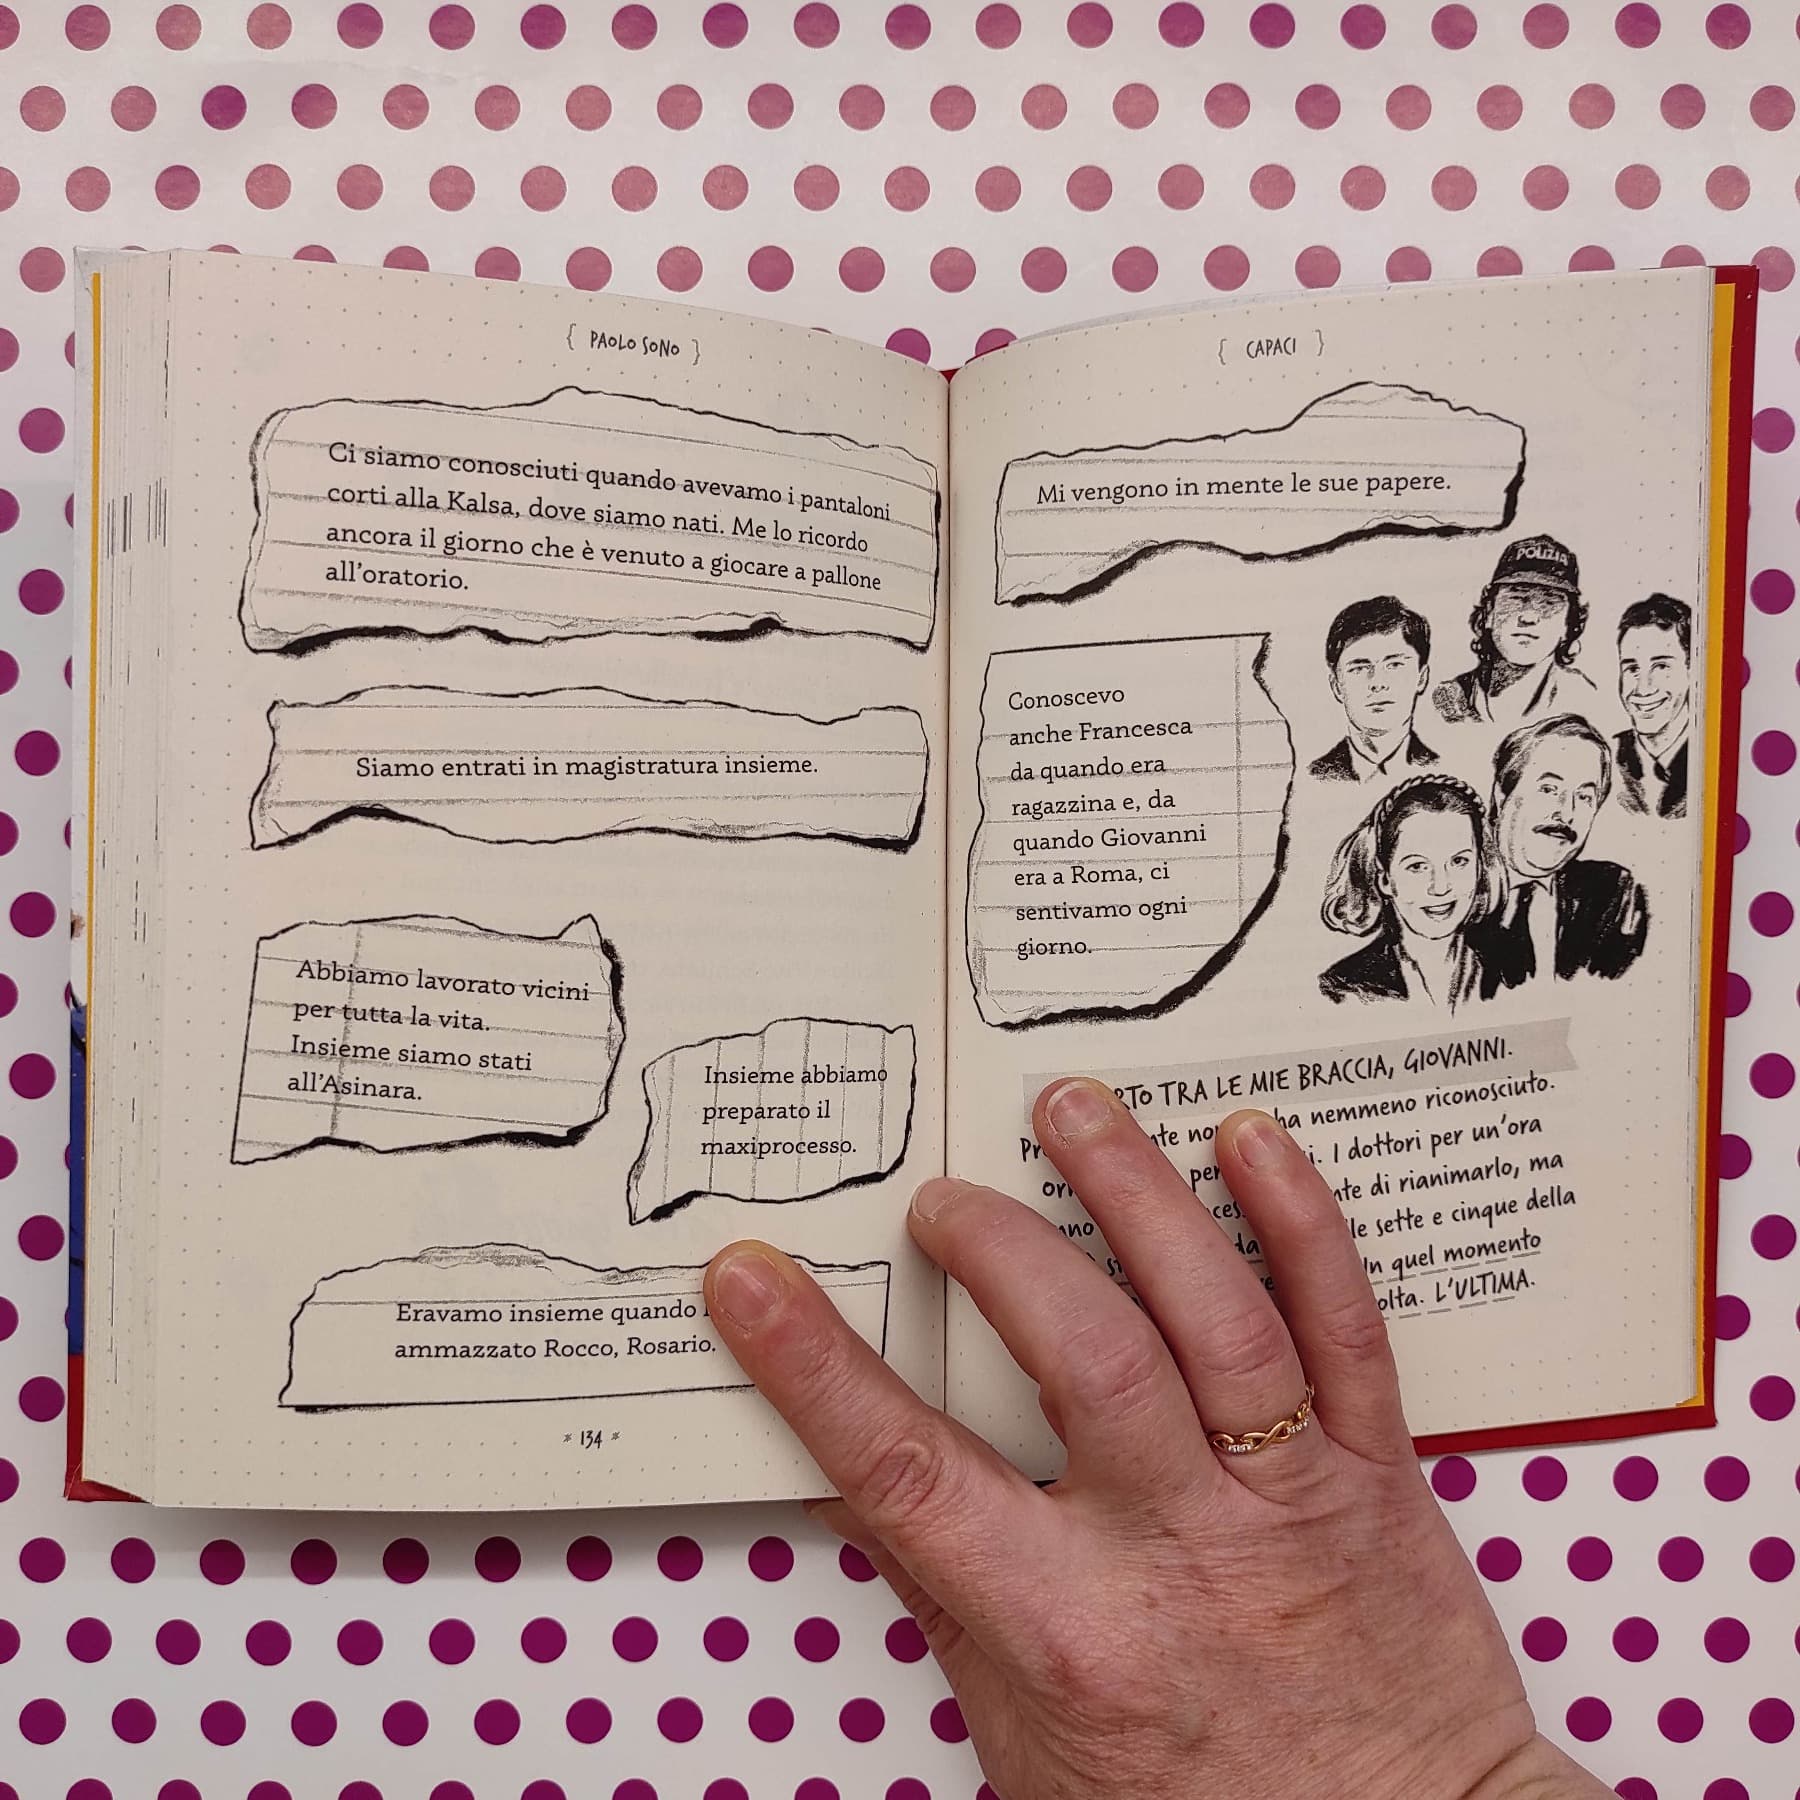 { PAOLO SONO }
Ci siamo conosciuti quando avevamo i pantaloni
corti alla Kalsa, dove siamo nati. Me lo ricordo
ancora il giorno che è venuto a giocare a pallone
all'oratorio.
Siamo entrati in magistratura insieme.
Abbiamo lavorato vicini
per tutta la vita.
Insieme siamo stati
all'Asinara.
Insieme abbiamo
preparato il
maxiprocesso.
Eravamo insieme quando
ammazzato Rocco, Rosario.
* 134 *
{ CAPACI }
Mi vengono in mente le sue papere.
POLIZIA
Conoscevo
anche Francesca
da quando era
ragazzina e, da
quando Giovanni
era a Roma, ci
sentivamo ogni
giorno.
TRA LE MIE BRACCIA, GIOVANNI.
ha nemmeno riconosciuto.
I dottori per un'ora
di rianimarlo, ma
le sette e cinque della
In quel momento
L'ULTIMA.